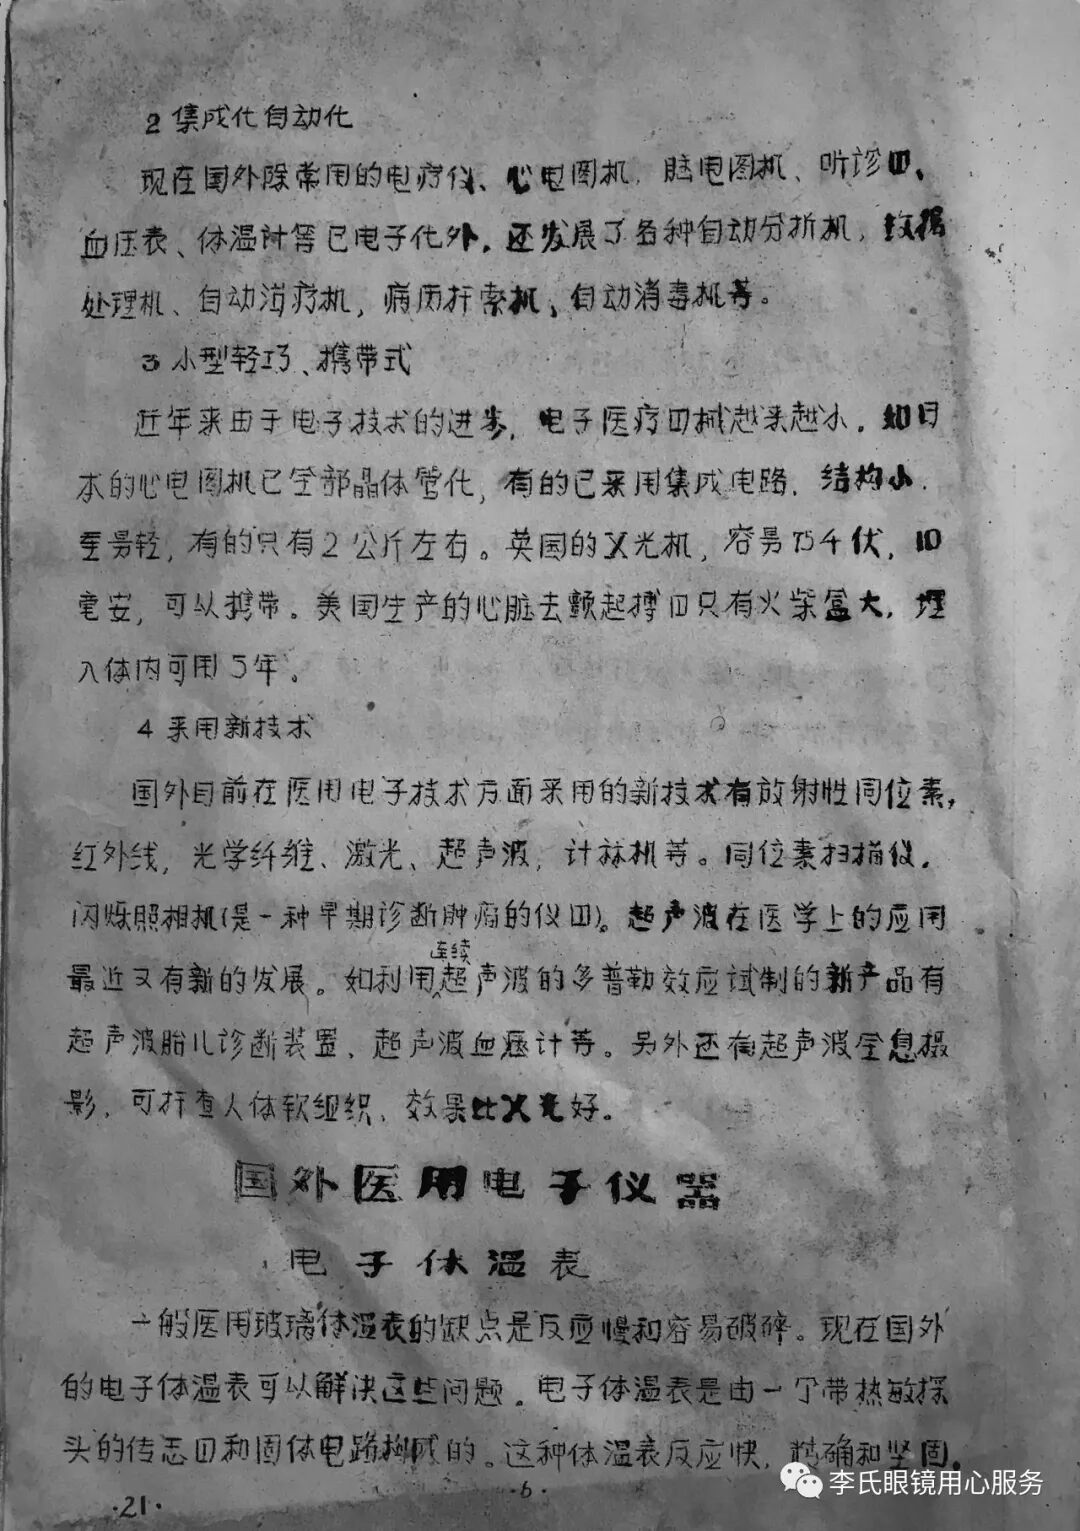 2 集成化自动化
现在国外除常用的电疗仪、心电图机，脑电图机、听诊口、
血压表、体温计等已电子化外，还发展了各种自动分折机，数据
处理机、自动治疗机，病历扦索机，自动消毒机等。
3 小型轻巧、携带式
近年来由于电子技术的进步，电子医疗口械越来越小。如日
本的心电图机已全部晶体管化，有的已采用集成电路，结构小，
重量轻，有的只有2公斤左右。英国的X光机，容量75千伏，10
毫安，可以携带。美国生产的心脏去颤起搏口只有火柴盒大，埋
入体内可用5年。
4 采用新技术
国外目前在医用电子技术方面采用的新技术有放射性同位素，
红外线，光学纤维、激光、超声波，计祘机等。同位素扫描仪，
闪烁照相机（是一种早期诊断肿瘤的仪口）。超声波在医学上的应用
最近又有新的发展。如利用连续超声波的多普勒效应试制的新产品有
超声波胎儿诊断装置、超声波血压计等。另外还有超声波全息摄
影，可扦查人体软组织，效果比X光好。
国外医用电子仪器
电子体温表
一般医用玻璃体温表的缺点是反应慢和容易破碎。现在国外
的电子体温表可以解决这些问题。电子体温表是由一个带热敏探
头的传志口和固体电路构成的。这种体温表反应快，精确和坚固。
·6·
·21·
李氏眼镜用心服务